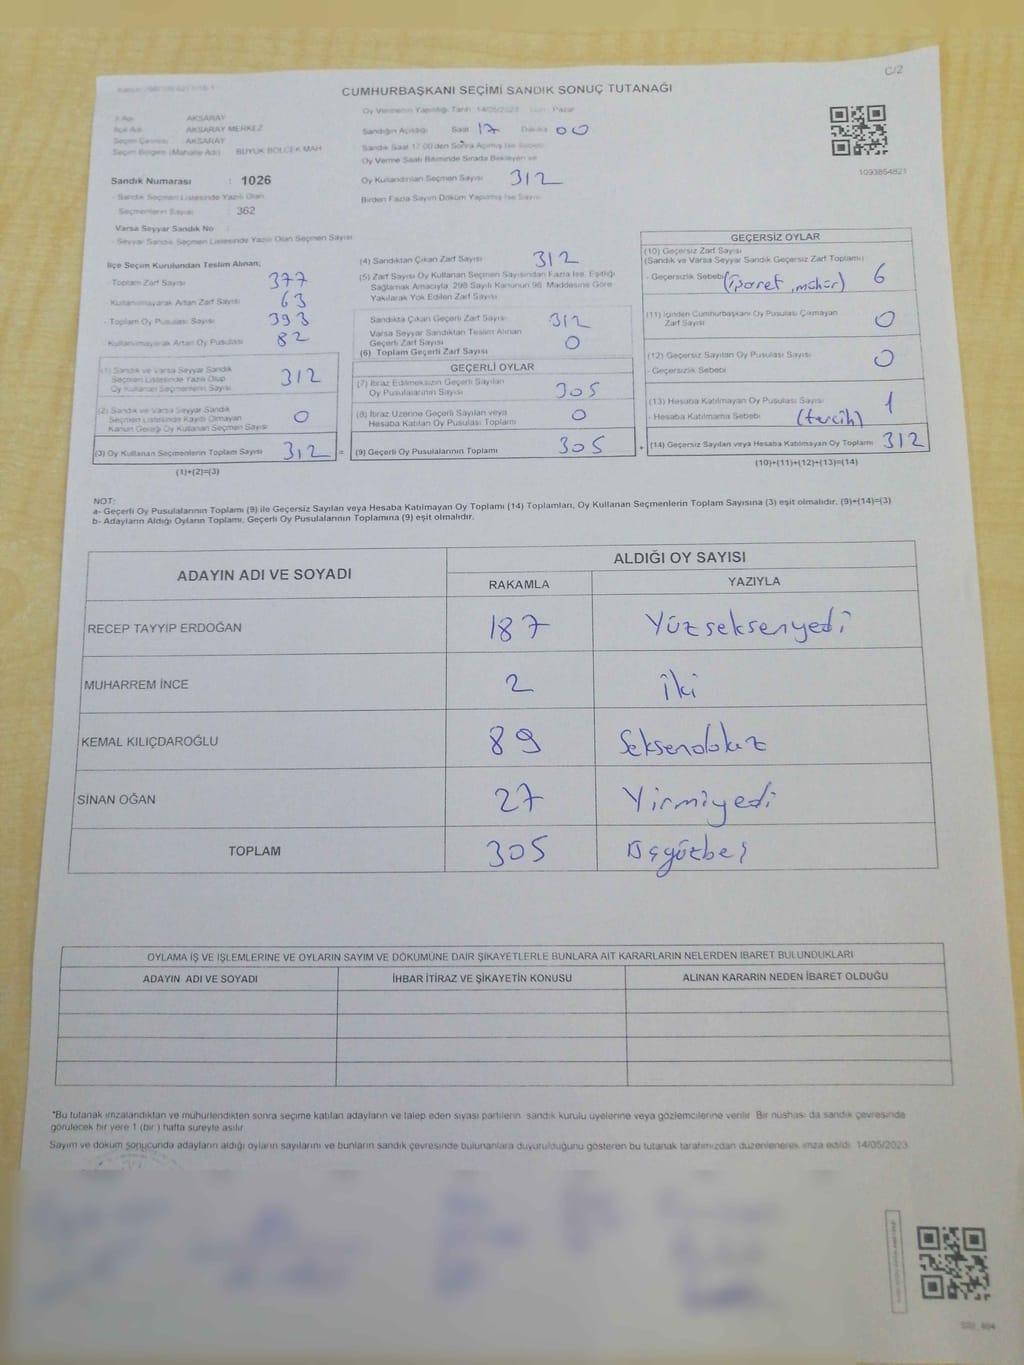 C/2
CUMHURBAŞKANI SEÇİMİ SANDIK SONUÇ TUTANAĞI
İl Adı AKSARAY
İlçe Adı AKSARAY MERKEZ
Seçim Çevresi AKSARAY
Seçim Bölgesi (Mahalle Adı) BÜYÜK BÖLCEK MAH
Sandık Numarası : 1026
- Sandık Seçmen Listesinde Yazılı Olan
Seçmenlerin Sayısı : 362
Varsa Seyyar Sandık No :
- Seyyar Sandık Seçmen Listesinde Yazılı Olan Seçmen Sayısı
Oy Vermenin Yapıldığı Tarih 14/05/2023 Gün Pazar
Sandığın Açıldığı Saat 17 Dakika 00
Sandık Saat 17.00'den Sonra Açılmış İse Sebebi
Oy Verme Saati Bitiminde Sırada Bekleyen ve
Oy Kullandırılan Seçmen Sayısı 312
Birden Fazla Sayım Döküm Yapılmış İse Sayısı
1093854821
İlçe Seçim Kurulundan Teslim Alınan;
- Toplam Zarf Sayısı 377
- Kullanılmayarak Artan Zarf Sayısı 63
- Toplam Oy Pusulası Sayısı 393
- Kullanılmayarak Artan Oy Pusulası 82
(1) Sandık ve Varsa Seyyar Sandık
Seçmen Listesinde Yazılı Olup
Oy Kullanan Seçmenlerin Sayısı 312
(2) Sandık ve Varsa Seyyar Sandık
Seçmen Listesinde Kayıtlı Olmayan
Kanun Gereği Oy Kullanan Seçmen Sayısı 0
(3) Oy Kullanan Seçmenlerin Toplam Sayısı 312 =
(1)+(2)=(3)
(4) Sandıktan Çıkan Zarf Sayısı 312
(5) Zarf Sayısı Oy Kullanan Seçmen Sayısından Fazla İse, Eşitliği
Sağlamak Amacıyla, 298 Sayılı Kanunun 98. Maddesine Göre
Yakılarak Yok Edilen Zarf Sayısı
Sandıkta Çıkan Geçerli Zarf Sayısı 312
Varsa Seyyar Sandıktan Teslim Alınan
Geçerli Zarf Sayısı 0
(6) Toplam Geçerli Zarf Sayısı
GEÇERLİ OYLAR
(7) İtiraz Edilmeksizin Geçerli Sayılan
Oy Pusulalarının Sayısı 305
(8) İtiraz Üzerine Geçerli Sayılan veya
Hesaba Katılan Oy Pusulası Toplamı 0
(9) Geçerli Oy Pusulalarının Toplamı 305 +
GEÇERSİZ OYLAR
(10) Geçersiz Zarf Sayısı
(Sandık ve Varsa Seyyar Sandık Geçersiz Zarf Toplamı)
- Geçersizlik Sebebi (işaret, mühür) 6
(11) İçinden Cumhurbaşkanı Oy Pusulası Çıkmayan
Zarf Sayısı 0
(12) Geçersiz Sayılan Oy Pusulası Sayısı
- Geçersizlik Sebebi 0
(13) Hesaba Katılmayan Oy Pusulası Sayısı
- Hesaba Katılmama Sebebi (tercih) 1
(14) Geçersiz Sayılan veya Hesaba Katılmayan Oy Toplamı 312
(10)+(11)+(12)+(13)=(14)
NOT:
a- Geçerli Oy Pusulalarının Toplamı (9) ile Geçersiz Sayılan veya Hesaba Katılmayan Oy Toplamı (14) Toplamları, Oy Kullanan Seçmenlerin Toplam Sayısına (3) eşit olmalıdır. (9)+(14)=(3)
b- Adayların Aldığı Oyların Toplamı, Geçerli Oy Pusulalarının Toplamına (9) eşit olmalıdır.
ADAYIN ADI VE SOYADI ALDIĞI OY SAYISI
RAKAMLA YAZIYLA
RECEP TAYYİP ERDOĞAN 187 Yüzseksenyedi
MUHARREM İNCE 2 İki
KEMAL KILIÇDAROĞLU 89 Seksendokuz
SİNAN OĞAN 27 Yirmiyedi
TOPLAM 305 Üçyüzbeş
OYLAMA İŞ VE İŞLEMLERİNE VE OYLARIN SAYIM VE DÖKÜMÜNE DAİR ŞİKAYETLERLE BUNLARA AİT KARARLARIN NELERDEN İBARET BULUNDUKLARI
ADAYIN ADI VE SOYADI İHBAR İTİRAZ VE ŞİKAYETİN KONUSU ALINAN KARARIN NEDEN İBARET OLDUĞU
*Bu tutanak imzalandıktan ve mühürlendikten sonra seçime katılan adayların ve talep eden siyasi partilerin sandık kurulu üyelerine veya gözlemcilerine verilir. Bir nüshası da sandık çevresinde
görülecek bir yere 1 (bir) hafta süreyle asılır.
Sayım ve döküm sonucunda adayların aldığı oyların sayılarını ve bunların sandık çevresinde bulunanlara duyurulduğunu gösteren bu tutanak tarafımızdan düzenlenerek imza edildi. 14/05/2023